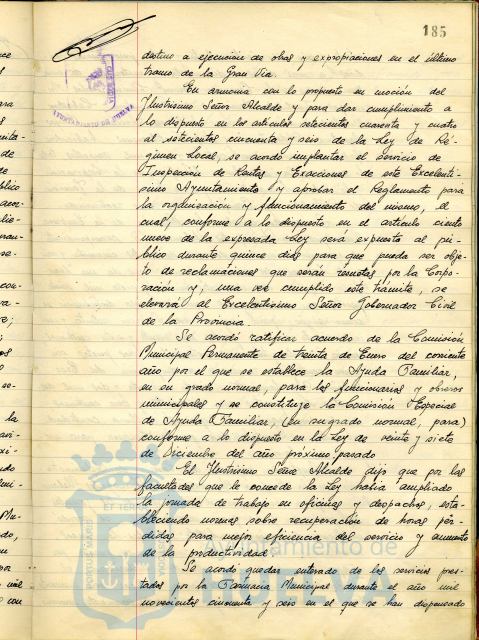 185
destino a ejecución de obras y expropiaciones en el último
tramo de la Gran Vía.
En armonía con lo propuesto en moción del
Ilustrísimo Señor Alcalde y para dar cumplimiento a
lo dispuesto en los artículos setecientos cuarenta y cuatro
al setecientos cincuenta y seis de la Ley de Ré-
gimen Local, se acordó implantar el servicio de
Inspección de Rentas y Exacciones de este Excelentí-
simo Ayuntamiento y aprobar el Reglamento para
la organización y funcionamiento del mismo, el
cual, conforme a lo dispuesto en el artículo ciento
nueve de la expresada Ley será expuesto al pú-
blico durante quince días para que pueda ser obje-
to de reclamaciones que serán resueltas por la Corpo-
ración y, una vez cumplido este trámite, se
elevará al Excelentísimo Señor Gobernador Civil
de la Provincia.
Se acordó ratificar acuerdo de la Comisión
Municipal Permanente de treinta de Enero del corriente
año por el que se establece la Ayuda Familiar,
en su grado normal, para los funcionarios y obreros
municipales y se constituye la Comisión Especial
de Ayuda Familiar, (en su grado normal, para)
conforme a lo dispuesto en la Ley de veinte y siete
de Diciembre del año próximo pasado
El Ilustrísimo Señor Alcalde dijo que por las
facultades que le concede la Ley había ampliado
la jornada de trabajo en oficinas y despachos, esta-
bleciendo normas sobre recuperación de horas per-
didas para mejor eficiencia del servicio y aumento
de la productividad.
Se acordó quedar enterado de los servicios pres-
tados por la Farmacia Municipal durante el año mil
novecientos cincuenta y seis en el que se han despachado
AYUNTAMIENTO DE HUELVA
Ayuntamiento de
HUELVA
PORTUS MARIS